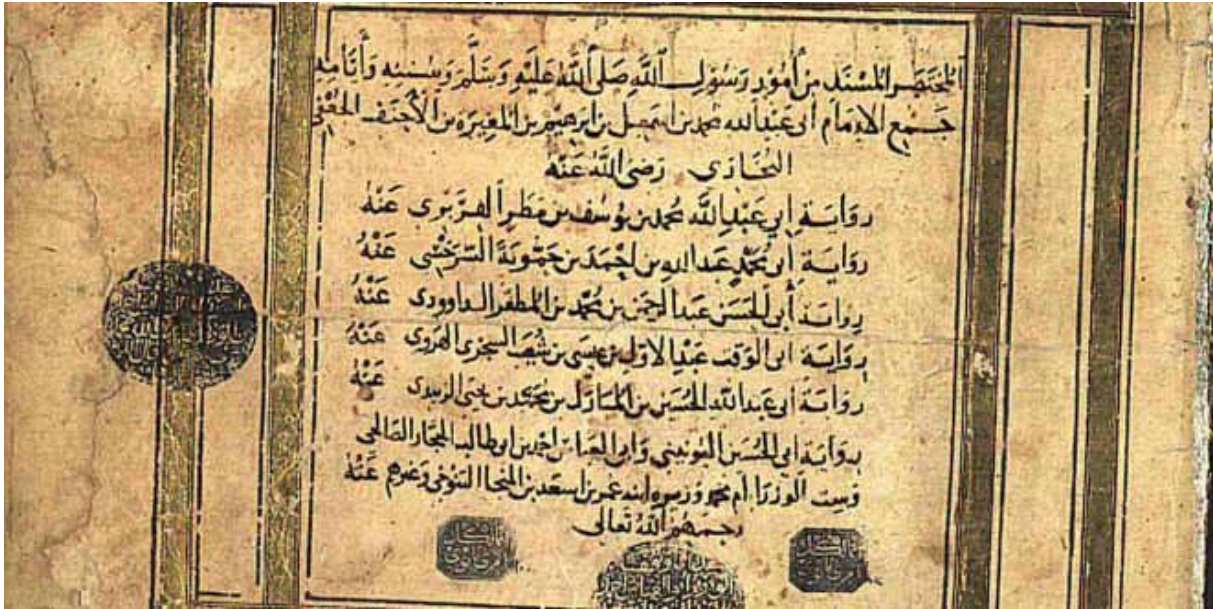 المختصر المسند من أمور رسول الله صلى الله عليه وسلم وسننه وأيامه
جمع الإمام أبي عبد الله محمد بن اسمعيل بن ابرهيم بن المغيرة بن الأحنف الجعفي
البخاري رضي الله عنه
رواية أبي عبد الله محمد بن يوسف بن مطر الفربري عنه
رواية أبي محمد عبد الله بن احمد بن حمويه السرخسي عنه
رواية أبي الحسن عبد الرحمن بن محمد بن المظفر الداوودي عنه
رواية أبي الوقت عبد الأول بن عيسى بن شعيب السجزي الهروي عنه
رواية أبي عبد الله الحسين بن المبارك بن محمد بن يحيى الزبيدي عنه
رواية أبي الحسين اليونيني وأبي العباس احمد بن ابي طالب الحجار الصالحي
وست الوزراء أم محمد وزيره ابنة عمر بن اسعد بن المنجا التنوخي وغيرهم عنه
رحمهم الله تعالى